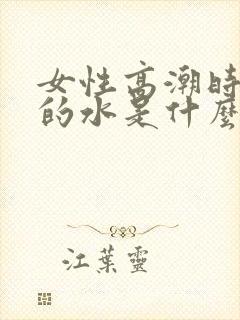 女性高潮時
的水是什麼
江葉靈